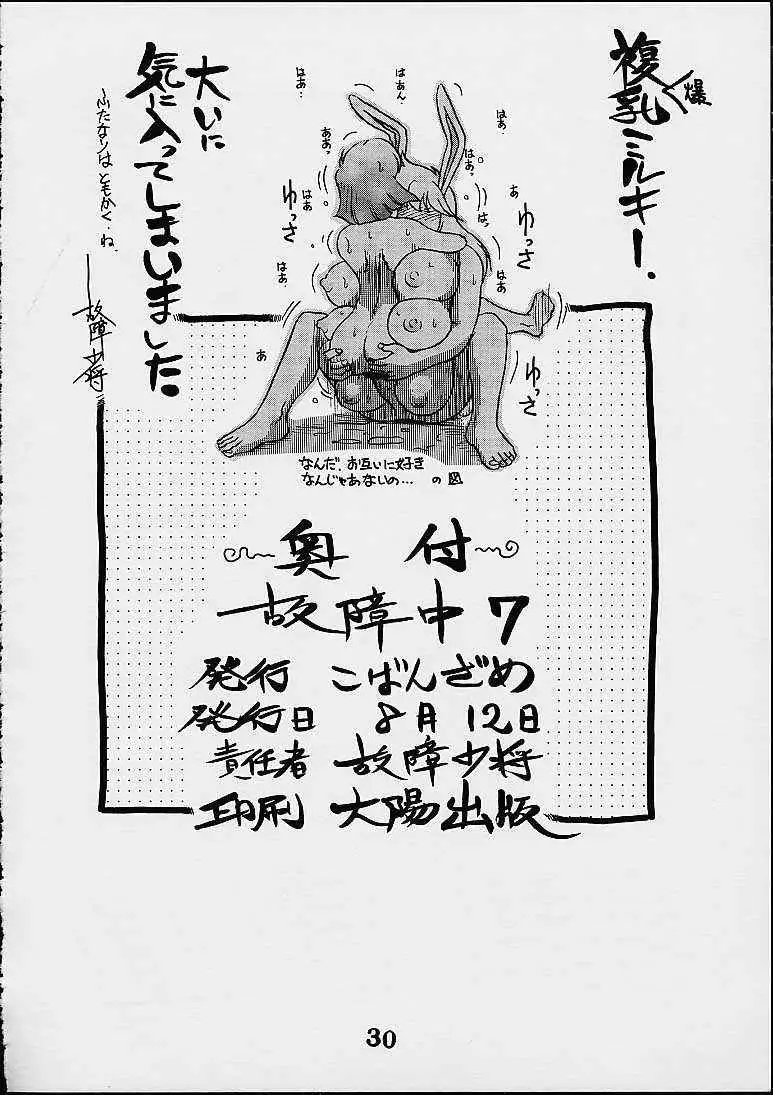 複乳ミルキー、
爆
大いに
気に入ってしまいました。
〜ふたなりはともかく…ね、
故障少将
はあ…
はあん
はあ…
はぁっ
あぁっ
あ
はっ
はあ
はぁ
あ
ゆっさ
ゆっさ
ゆっさ
なんだ、お互いに好き
なんじゃあないの… の図
奥付
故障中7
発行 こばんざめ
発行日 8月12日
責任者 故障少将
印刷 大陽出版
30